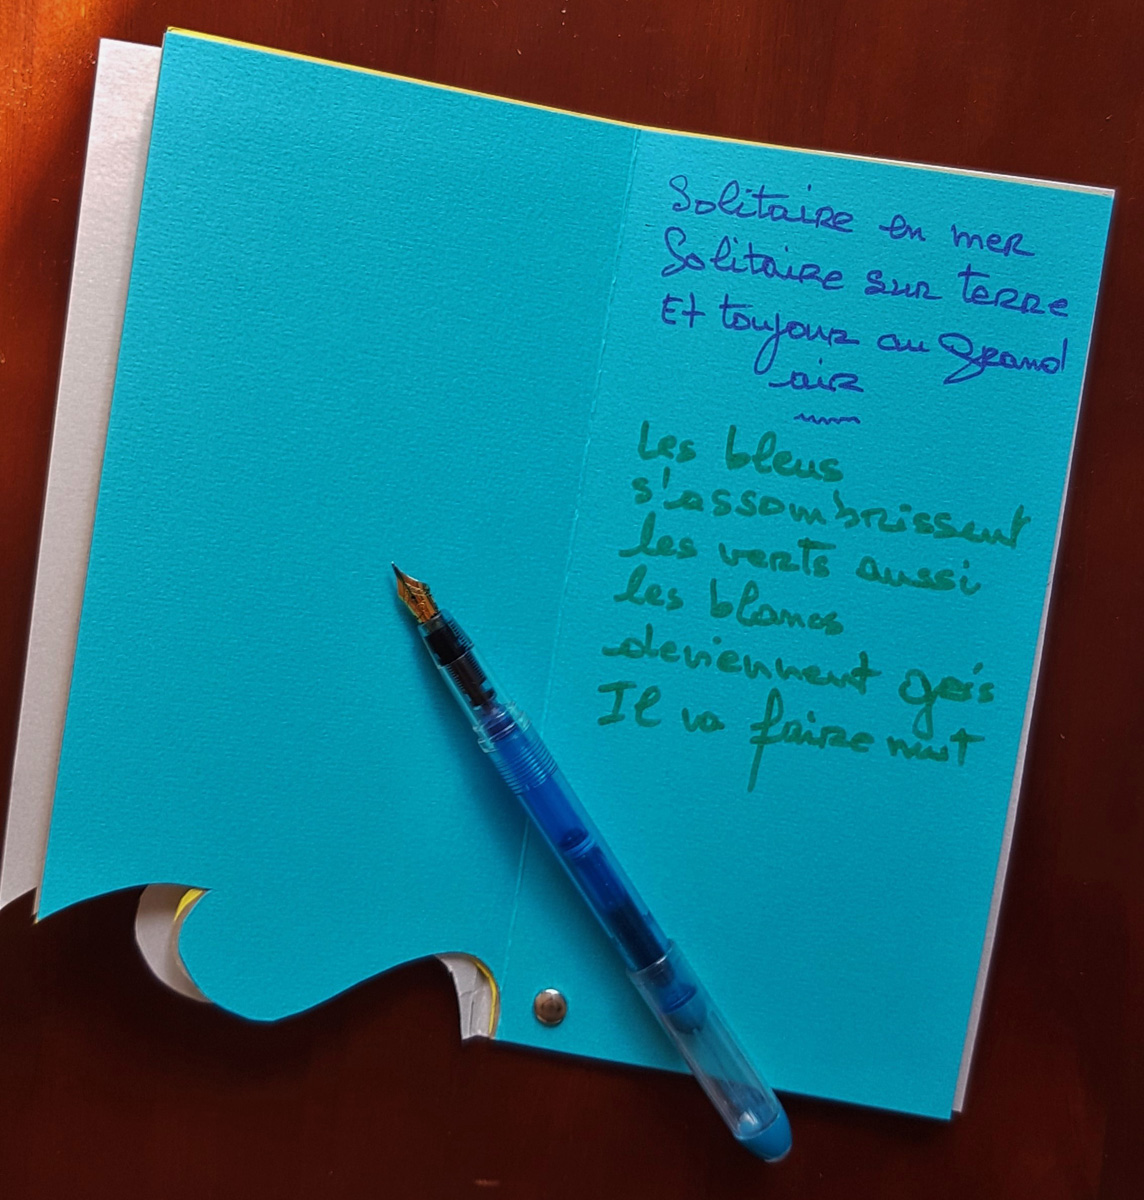 Solitaire en mer
Solitaire sur terre
Et toujour au grand
air
Les bleus
s'assombrissent
les verts aussi
les blancs
deviennent gris
Il va faire nuit